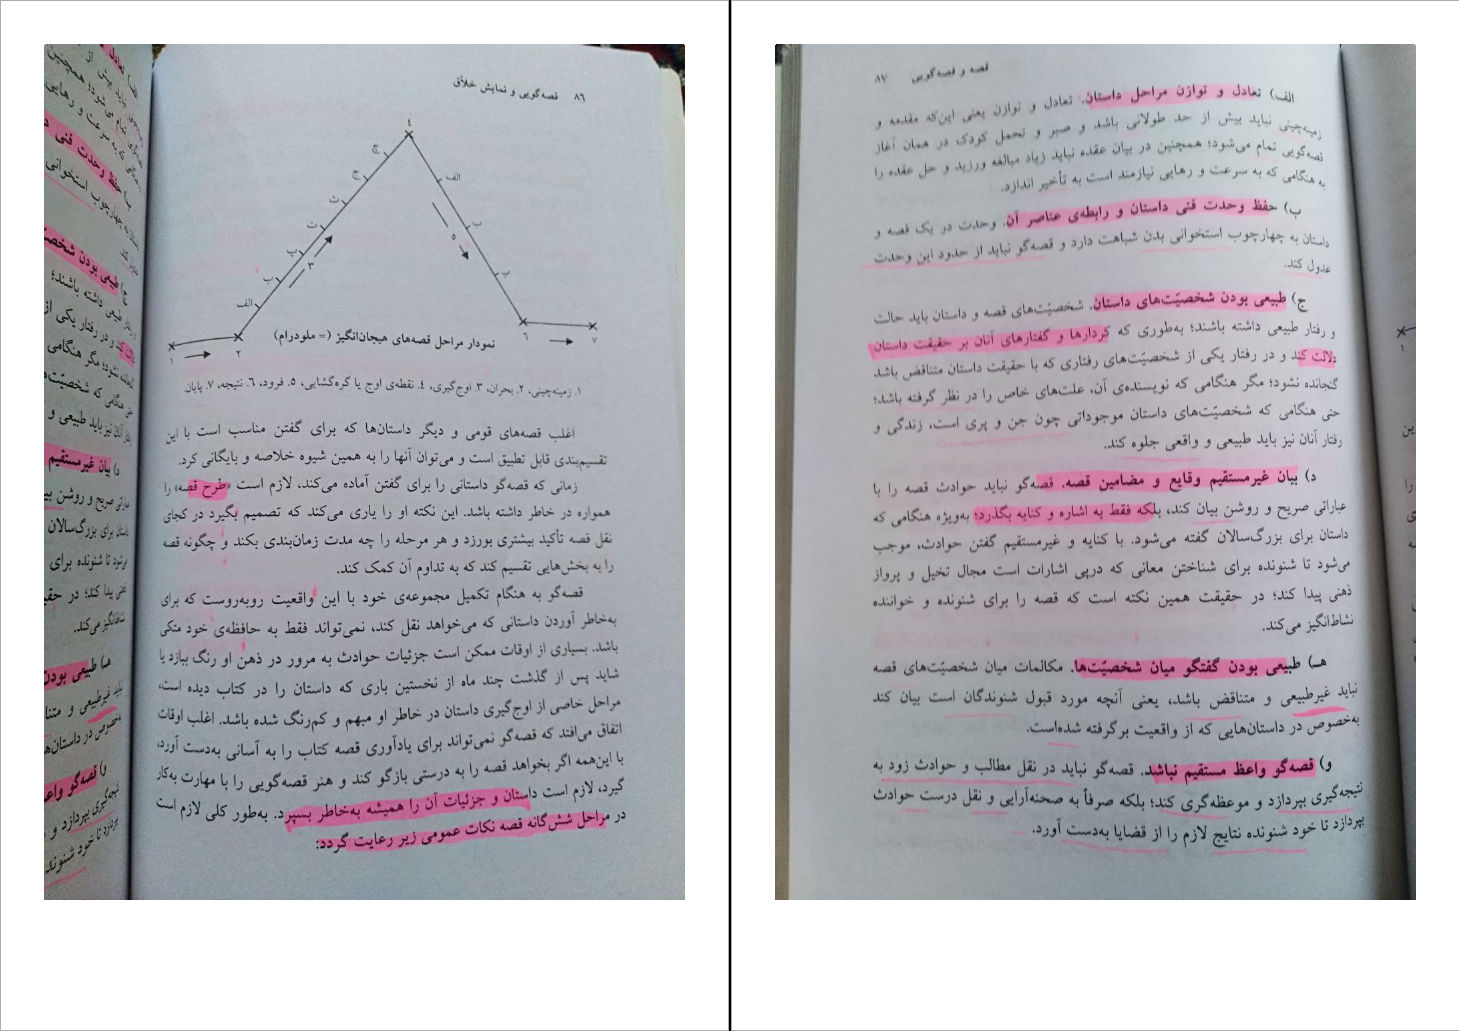 ۸۶ قصه‌گویی و نمایش خلاّق
٤
ج
ج
ث
ت
پ
ب
الف
۳
الف
ب
۵
پ
۱
۲
۶
۷
نمودار مراحل قصه‌های هیجان‌انگیز (= ملودرام)
۱. زمینه‌چینی، ۲. بحران، ۳. اوج‌گیری، ٤. نقطه‌ی اوج یا گره‌گشایی، ۵. فرود، ۶. نتیجه، ۷. پایان.
اغلب قصه‌های قومی و دیگر داستان‌ها که برای گفتن مناسب است با این
تقسیم‌بندی قابل تطبیق است و می‌توان آنها را به همین شیوه خلاصه و بایگانی کرد.
زمانی که قصه‌گو داستانی را برای گفتن آماده می‌کند، لازم است «طرح قصه» را
همواره در خاطر داشته باشد. این نکته او را یاری می‌کند که تصمیم بگیرد در کجای
نقل قصه تأکید بیشتری بورزد و هر مرحله را چه مدت زمان‌بندی بکند و چگونه قصه
را به بخش‌هایی تقسیم کند که به تداوم آن کمک کند.
قصه‌گو به هنگام تکمیل مجموعه‌ی خود با این واقعیت روبه‌روست که برای
به‌خاطر آوردن داستانی که می‌خواهد نقل کند، نمی‌تواند فقط به حافظه‌ی خود متکی
باشد. بسیاری از اوقات ممکن است جزئیات حوادث به مرور در ذهن او رنگ ببازد یا
شاید پس از گذشت چند ماه از نخستین باری که داستان را در کتاب دیده است،
مراحل خاصی از اوج‌گیری داستان در خاطر او مبهم و کم‌رنگ شده باشد. اغلب اوقات
اتفاق می‌افتد که قصه‌گو نمی‌تواند برای یادآوری قصه کتاب را به آسانی به‌دست آورد،
با این‌همه اگر بخواهد قصه را به درستی بازگو کند و هنر قصه‌گویی را با مهارت به‌کار
گیرد، لازم است داستان و جزئیات آن را همیشه به‌خاطر بسپرد. به‌طور کلی لازم است
در مراحل شش‌گانه قصه نکات عمومی زیر رعایت گردد:
قصه و قصه‌گویی ۸۷
الف) تعادل و توازن مراحل داستان. تعادل و توازن یعنی این‌که مقدمه و
زمینه‌چینی نباید بیش از حد طولانی باشد و صبر و تحمل کودک در همان آغاز
قصه‌گویی تمام می‌شود؛ همچنین در بیان عقده نباید زیاد مبالغه ورزید و حل عقده را
به هنگامی که به سرعت و رهایی نیازمند است به تأخیر اندازد.
ب) حفظ وحدت فنی داستان و رابطه‌ی عناصر آن. وحدت در یک قصه و
داستان به چهارچوب استخوانی بدن شباهت دارد و قصه‌گو نباید از حدود این وحدت
عدول کند.
ج) طبیعی بودن شخصیّت‌های داستان. شخصیّت‌های قصه و داستان باید حالت
و رفتار طبیعی داشته باشند؛ به‌طوری که کردارها و گفتارهای آنان بر حقیقت داستان
دلالت کند و در رفتار یکی از شخصیّت‌های رفتاری که با حقیقت داستان متناقض باشد
گنجانده نشود؛ مگر هنگامی که نویسنده‌ی آن، علت‌های خاص را در نظر گرفته باشد؛
حتی هنگامی که شخصیّت‌های داستان موجوداتی چون جن و پری است، زندگی و
رفتار آنان نیز باید طبیعی و واقعی جلوه کند.
د) بیان غیرمستقیم وقایع و مضامین قصه. قصه‌گو نباید حوادث قصه را با
عباراتی صریح و روشن بیان کند، بلکه فقط به اشاره و کنایه بگذرد؛ به‌ویژه هنگامی که
داستان برای بزرگ‌سالان گفته می‌شود. با کنایه و غیرمستقیم گفتن حوادث، موجب
می‌شود تا شنونده برای شناختن معانی که درپی اشارات است مجال تخیل و پرواز
ذهنی پیدا کند؛ در حقیقت همین نکته است که قصه را برای شنونده و خواننده
نشاط‌انگیز می‌کند.
هـ) طبیعی بودن گفتگو میان شخصیّت‌ها. مکالمات میان شخصیّت‌های قصه
نباید غیرطبیعی و متناقض باشد، یعنی آنچه مورد قبول شنوندگان است بیان کند
به‌خصوص در داستان‌هایی که از واقعیت برگرفته شده‌است.
و) قصه‌گو واعظ مستقیم نباشد. قصه‌گو نباید در نقل مطالب و حوادث زود به
نتیجه‌گیری بپردازد و موعظه‌گری کند؛ بلکه صرفاً به صحنه‌آرایی و نقل درست حوادث
بپردازد تا خود شنونده نتایج لازم را از قضایا به‌دست آورد.